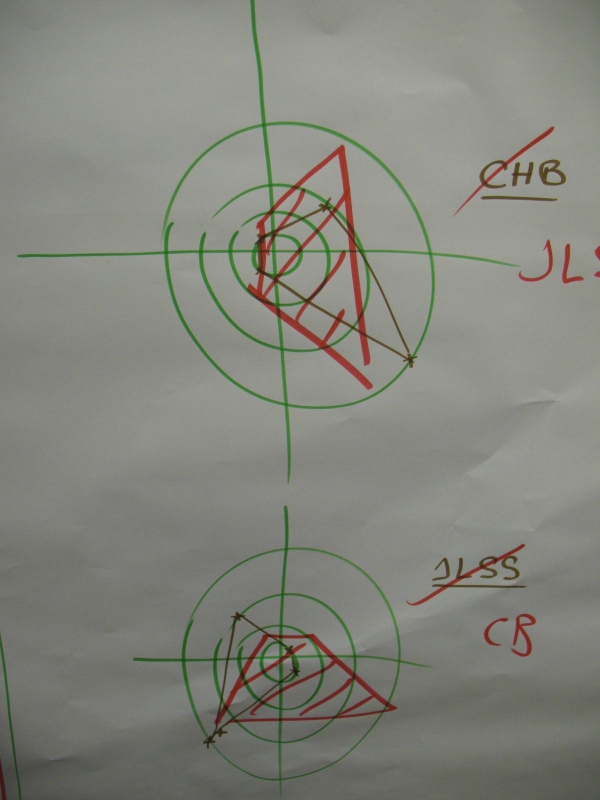 CHB
JLS
JLSS
CB